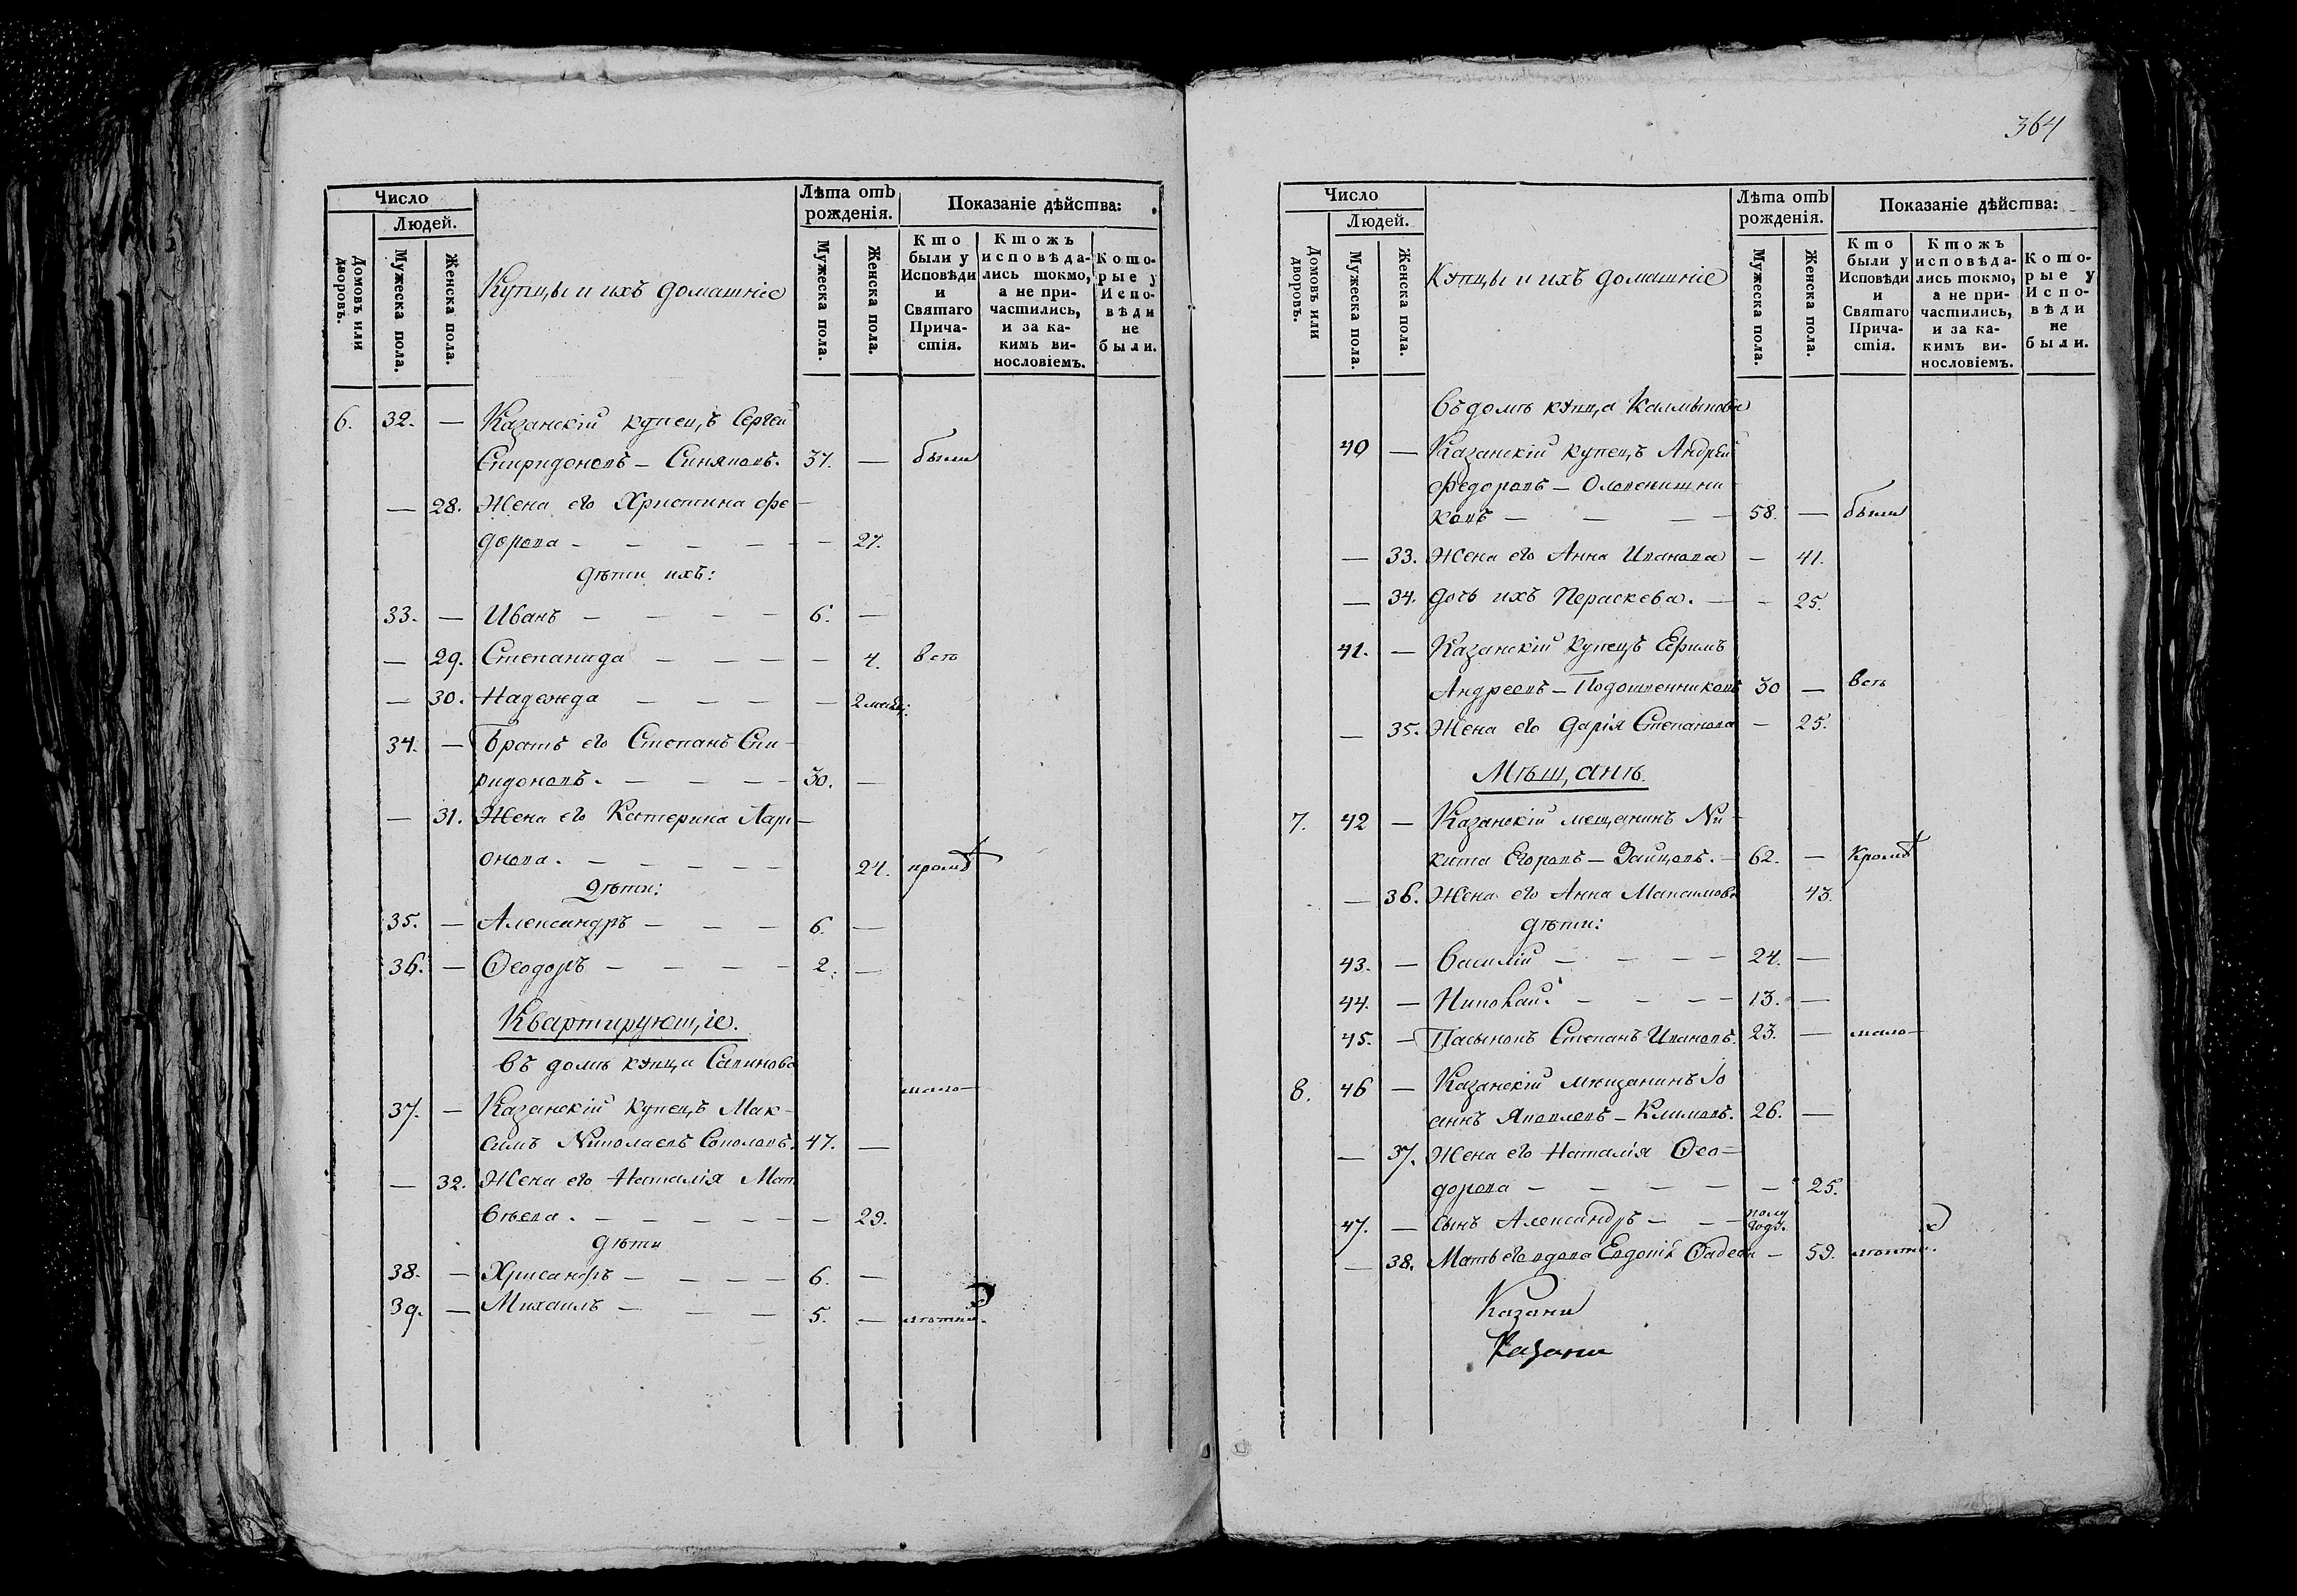 Число
Людей.
Домовъ или дворовъ.
Мужеска пола.
Женска пола.
Купцы и ихъ домашніе
Лѣта отъ
рожденія.
Мужеска пола.
Женска пола.
Показаніе дѣйства:
Кто
были у
Исповѣди
и
Святаго
Прича-
стія.
Ктожъ
исповѣда-
лись токмо,
а не при-
частились,
и за ка-
кимъ ви-
нословіемъ.
Кото-
рые у
Испо-
вѣди
не
были.
6. 32. — Казанскій купецъ Сергей
Спиридоновъ — Синяковъ. 37. — были
— 28. Жена его Христина Фе
дорова — — — — — 27.
дѣти ихъ:
33. — Иванъ — — — — 6. —
— 29. Степанида — — — — 4. всѣ
— 30. Надежда — — — — 2 месяц:
34. — Братъ его Степанъ Спи-
ридоновъ. — — — — 30. —
— 31. Жена его Катерина Лари
онова. — — — — — 24. кромѣ +
Дѣти:
35. — Александръ — — — 6. —
36. — Ѳеодоръ — — — — 2. —
Квартирующіе.
въ домѣ купца Савинова
мало-
37. — Казанскій купецъ Мак-
симъ Николаевъ Соколовъ. 47. —
— 32. Жена его Наталія Мат
вѣева. — — — — — — 29.
дѣти
38. — Хрисанфъ — — — — 6. —
39. — Михаилъ — — — 5. — лѣтни.
364
Число
Людей.
Домовъ или дворовъ.
Мужеска пола.
Женска пола.
Купцы и ихъ домашніе
Лѣта отъ
рожденія.
Мужеска пола.
Женска пола.
Показаніе дѣйства:
Кто
были у
Исповѣди
и
Святаго
Прича-
стія.
Ктожъ
исповѣда-
лись токмо,
а не при-
частились,
и за ка-
кимъ ви-
нословіемъ.
Кото-
рые у
Испо-
вѣди
не
были.
Въ домѣ купца Калмыкова
40 — Казанскій купецъ Андрей
Федоровъ — Оловенишни
ковъ — — — — 58. — были
— 33. Жена его Анна Иванова — 41.
— 34. Дочь ихъ Параскева. — — 25.
41. — Казанскій Купецъ Ефимъ
Андреевъ — Подошвенниковъ 30 — всѣ
— 35. Жена его Дарія Степанова — 25.
Мѣщанѣ.
7. 42 — Казанскій мещанинъ Ни-
кита Егоровъ — Зайцовъ. — 62. — Кромѣ +
— 36. Жена его Анна Максимова 43.
дѣти:
43. — Василій — — — — 24. —
44. — Николай. — — — — 13. —
45. — Пасынокъ Степанъ Ивановъ. 23. — мало-
8. 46 — Казанскій мѣщанинъ Іо
аннъ Яковлевъ — Климовъ. 26. —
— 37. Жена его Наталія Ѳео-
дорова — — — — — 25.
47. — Сынъ Александръ — — полу года.
— 38. Мать его вдова Евдокія Фадеев — 59. лѣтни.
Казани
Казани